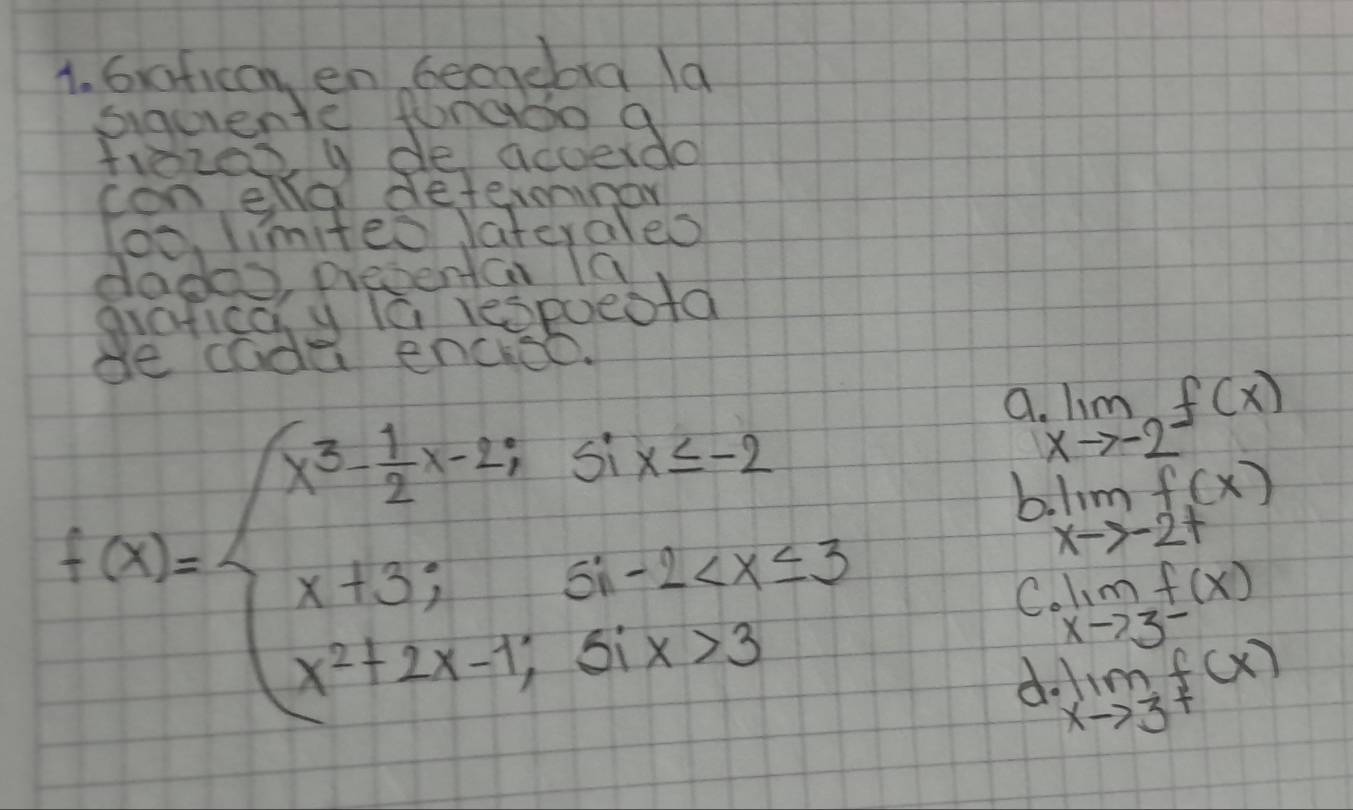 1. Graficar en Geogebra la
siguiente función a
trozos y de acuerdo
con ella determinar
los límites laterales
dados, presentar la
gráfica y la respuesta
de cada enciso.
f(x) = { x³ - 1/2 x - 2; si x ≤ -2
x + 3; si -2 < x ≤ 3
x² + 2x - 1; si x > 3
a. lim f(x)
x → -2⁻
b. lim f(x)
x → -2+
c. lim f(x)
x → 3⁻
d. lim f(x)
x → 3⁺